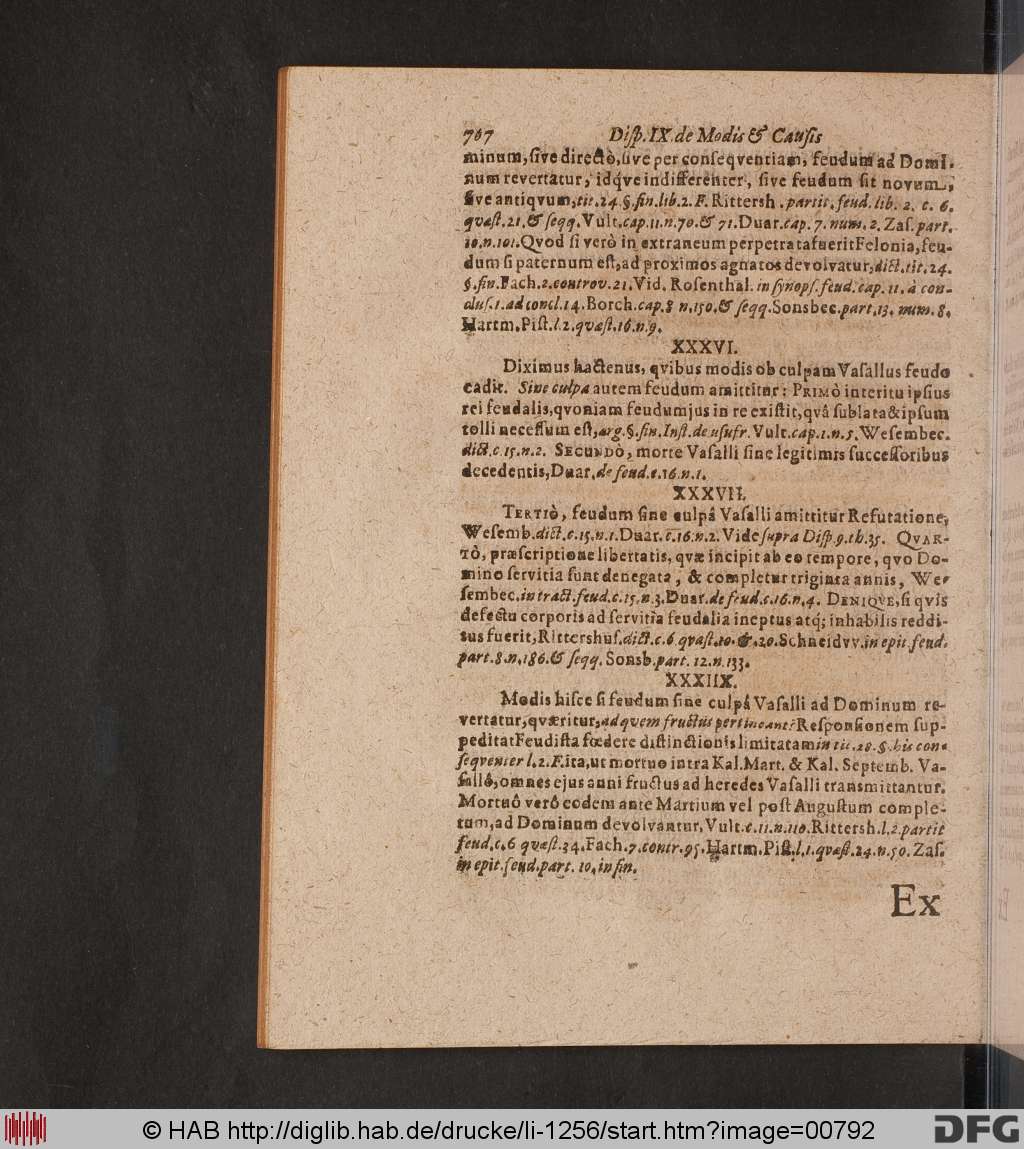 767 Disp. IX. de Modis & Causis
minum, sive directò, sive per conseqventiam, feudum ad Domi-
num revertatur, idq́ve indifferenter, sive feudum sit novum,
sive antiqvum, tit. 24. §. fin. lib. 2. F. Rittersh. partit. feud. lib. 2. c. 6.
quæst. 21. & seqq. Vult. cap. 11. n. 70. & 71. Duar. cap. 7. num. 2. Zas. part.
10. n. 101. Qvod si verò in extraneum perpetrata fuerit Felonia, feu-
dum si paternum est, ad proximos agnatos devolvatur, dict. tit. 24.
§. fin. Fach. 2. controv. 21. Vid. Rosenthal. in synops. feud. cap. 11. à con-
clus. 1. ad concl. 14. Borch. cap. 8 n. 150. & seqq. Sonsbec. part. 13. num. 8.
Hartm. Pist. l. 2. quæst. 16. n. 9.
XXXVI.
Diximus hactenus, qvibus modis ob culpam Vasallus feudo
cadit. Sine culpa autem feudum amittitur: PRIMÒ interitu ipsius
rei feudalis, qvoniam feudum jus in re existit, qvâ sublata & ipsum
tolli necessum est, arg. §. fin. Inst. de usufr. Vult. cap. 1. n. 5. Wesembec.
dict. c. 15. n. 2. SECUNDÒ, morte Vasalli sine legitimis successoribus
decedentis, Duar. de feud. c. 16. n. 1.
XXXVII.
TERTIÒ, feudum sine culpâ Vasalli amittitur Refutatione,
Wesemb. dict. c. 15. n. 1. Duar. c. 16. n. 2. Vide supra Disp. 9. th. 35. QVAR-
TÒ, præscriptione libertatis, qvæ incipit ab eo tempore, qvo Do-
mino servitia sunt denegata, & completur triginta annis, We-
sembec. in tract. feud. c. 15. n. 3. Duar. de feud. c. 16. n. 4. DENIQVE, si qvis
defectu corporis ad servitia feudalia ineptus atq; inhabilis reddi-
tus fuerit, Rittershus. dict. c. 6 qvæst. 10. & 20. Schneidvv. in epit. feud.
part. 8. n. 186. & seqq. Sonsb. part. 12. n. 133.
XXXIIX.
Modis hisce si feudum sine culpâ Vasalli ad Dominum re-
vertatur, qværitur, ad quem fructus pertineant? Responsionem sup-
peditat Feudista fœdere distinctionis limitatam in tit. 28. §. his con-
seqventer l. 2. F. ita, ut mortuo intra Kal. Mart. & Kal. Septemb. Va-
sallô, omnes ejus anni fructus ad heredes Vasalli transmittantur.
Mortuô verô eodem ante Martium vel post Augustum comple-
tum, ad Dominum devolvantur, Vult. c. 11. n. 110. Rittersh. l. 2. partit
feud. c. 6 quæst. 34. Fach. 7. contr. 95. Hartm. Pist. l. 1. quæst. 24. n. 50. Zas.
in epit. feud. part. 10. in fin.
Ex
© HAB http://diglib.hab.de/drucke/li-1256/start.htm?image=00792
DFG